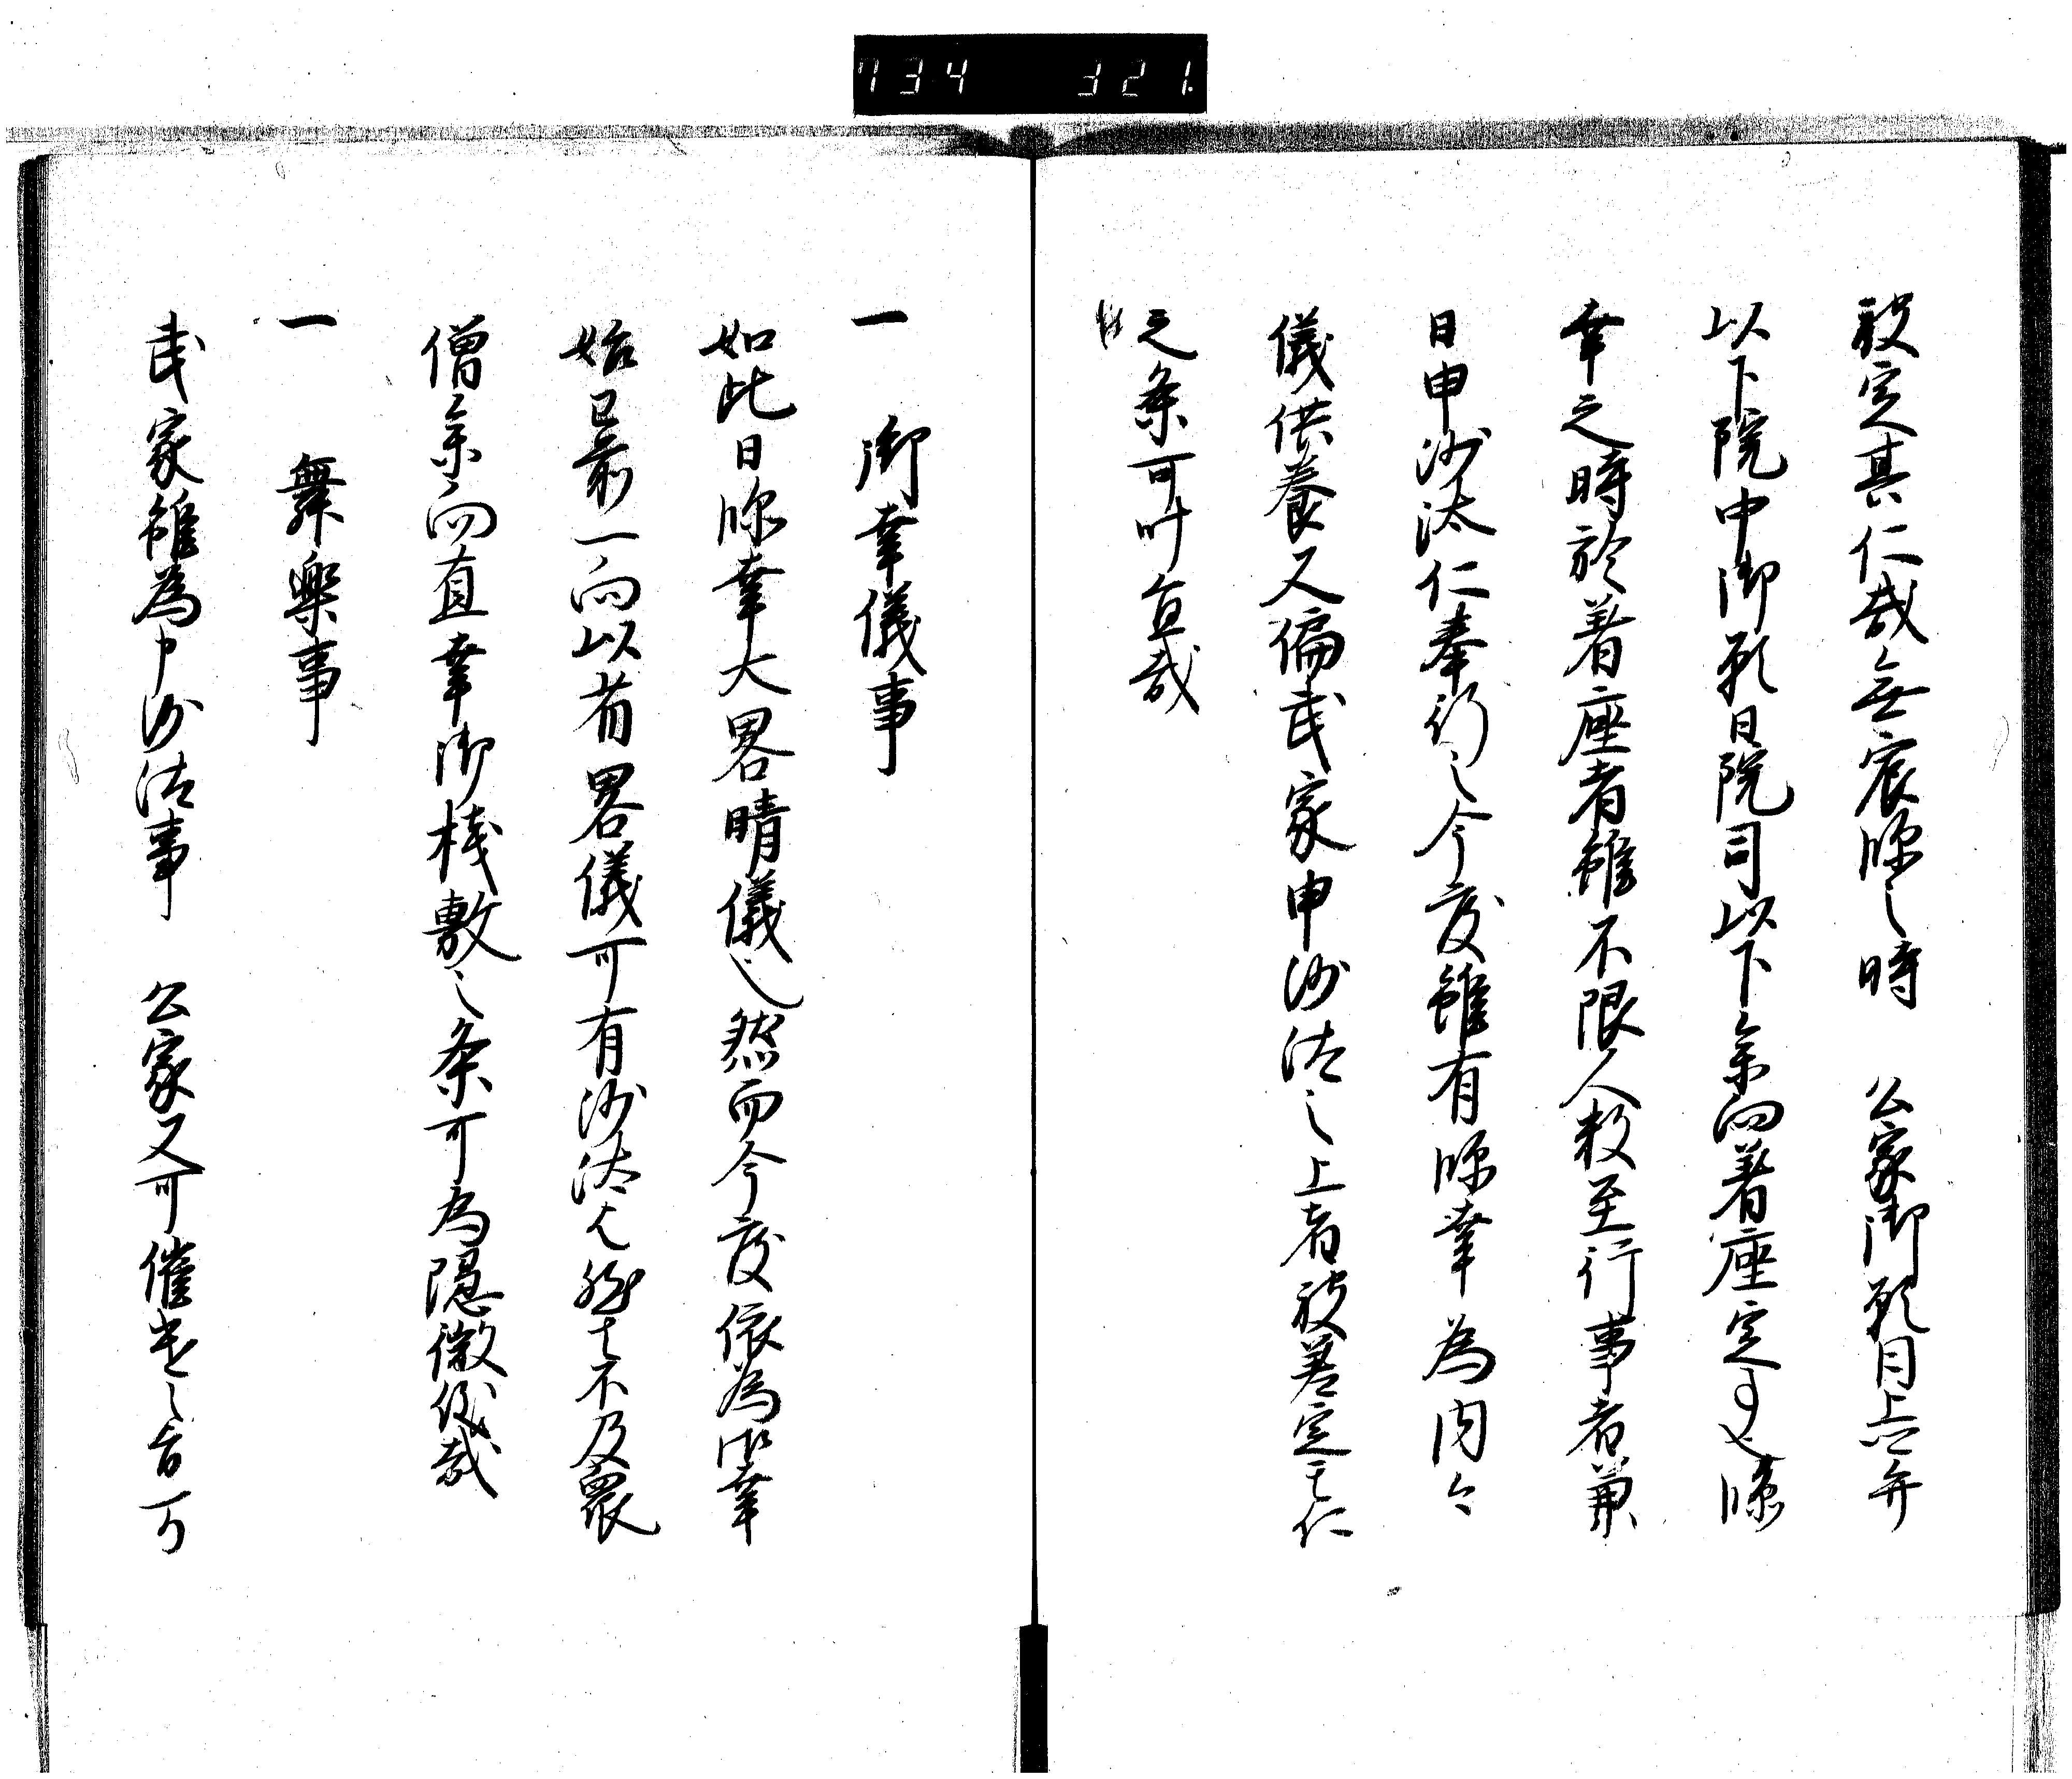 734 321.
被定其仁哉無宸臨之時 公家御願日上卿弁
以下院中御願日院司以下参向着座定事也臨
幸之時於着座者雖不限人数至行事者兼
日申沙汰仁奉行之今度雖有臨幸為内々
儀供養又偏武家申沙汰之上者被差定其仁
之条可叶宜哉
一 御幸儀事
如此日臨幸大略晴儀也然而今度依為御幸
始已前一向以省略儀可有沙汰也然者不及衆
僧参向直幸御桟敷之条可為隠微儀哉
一 舞楽事
武家雖為申沙汰事 公家又可催進之旨可